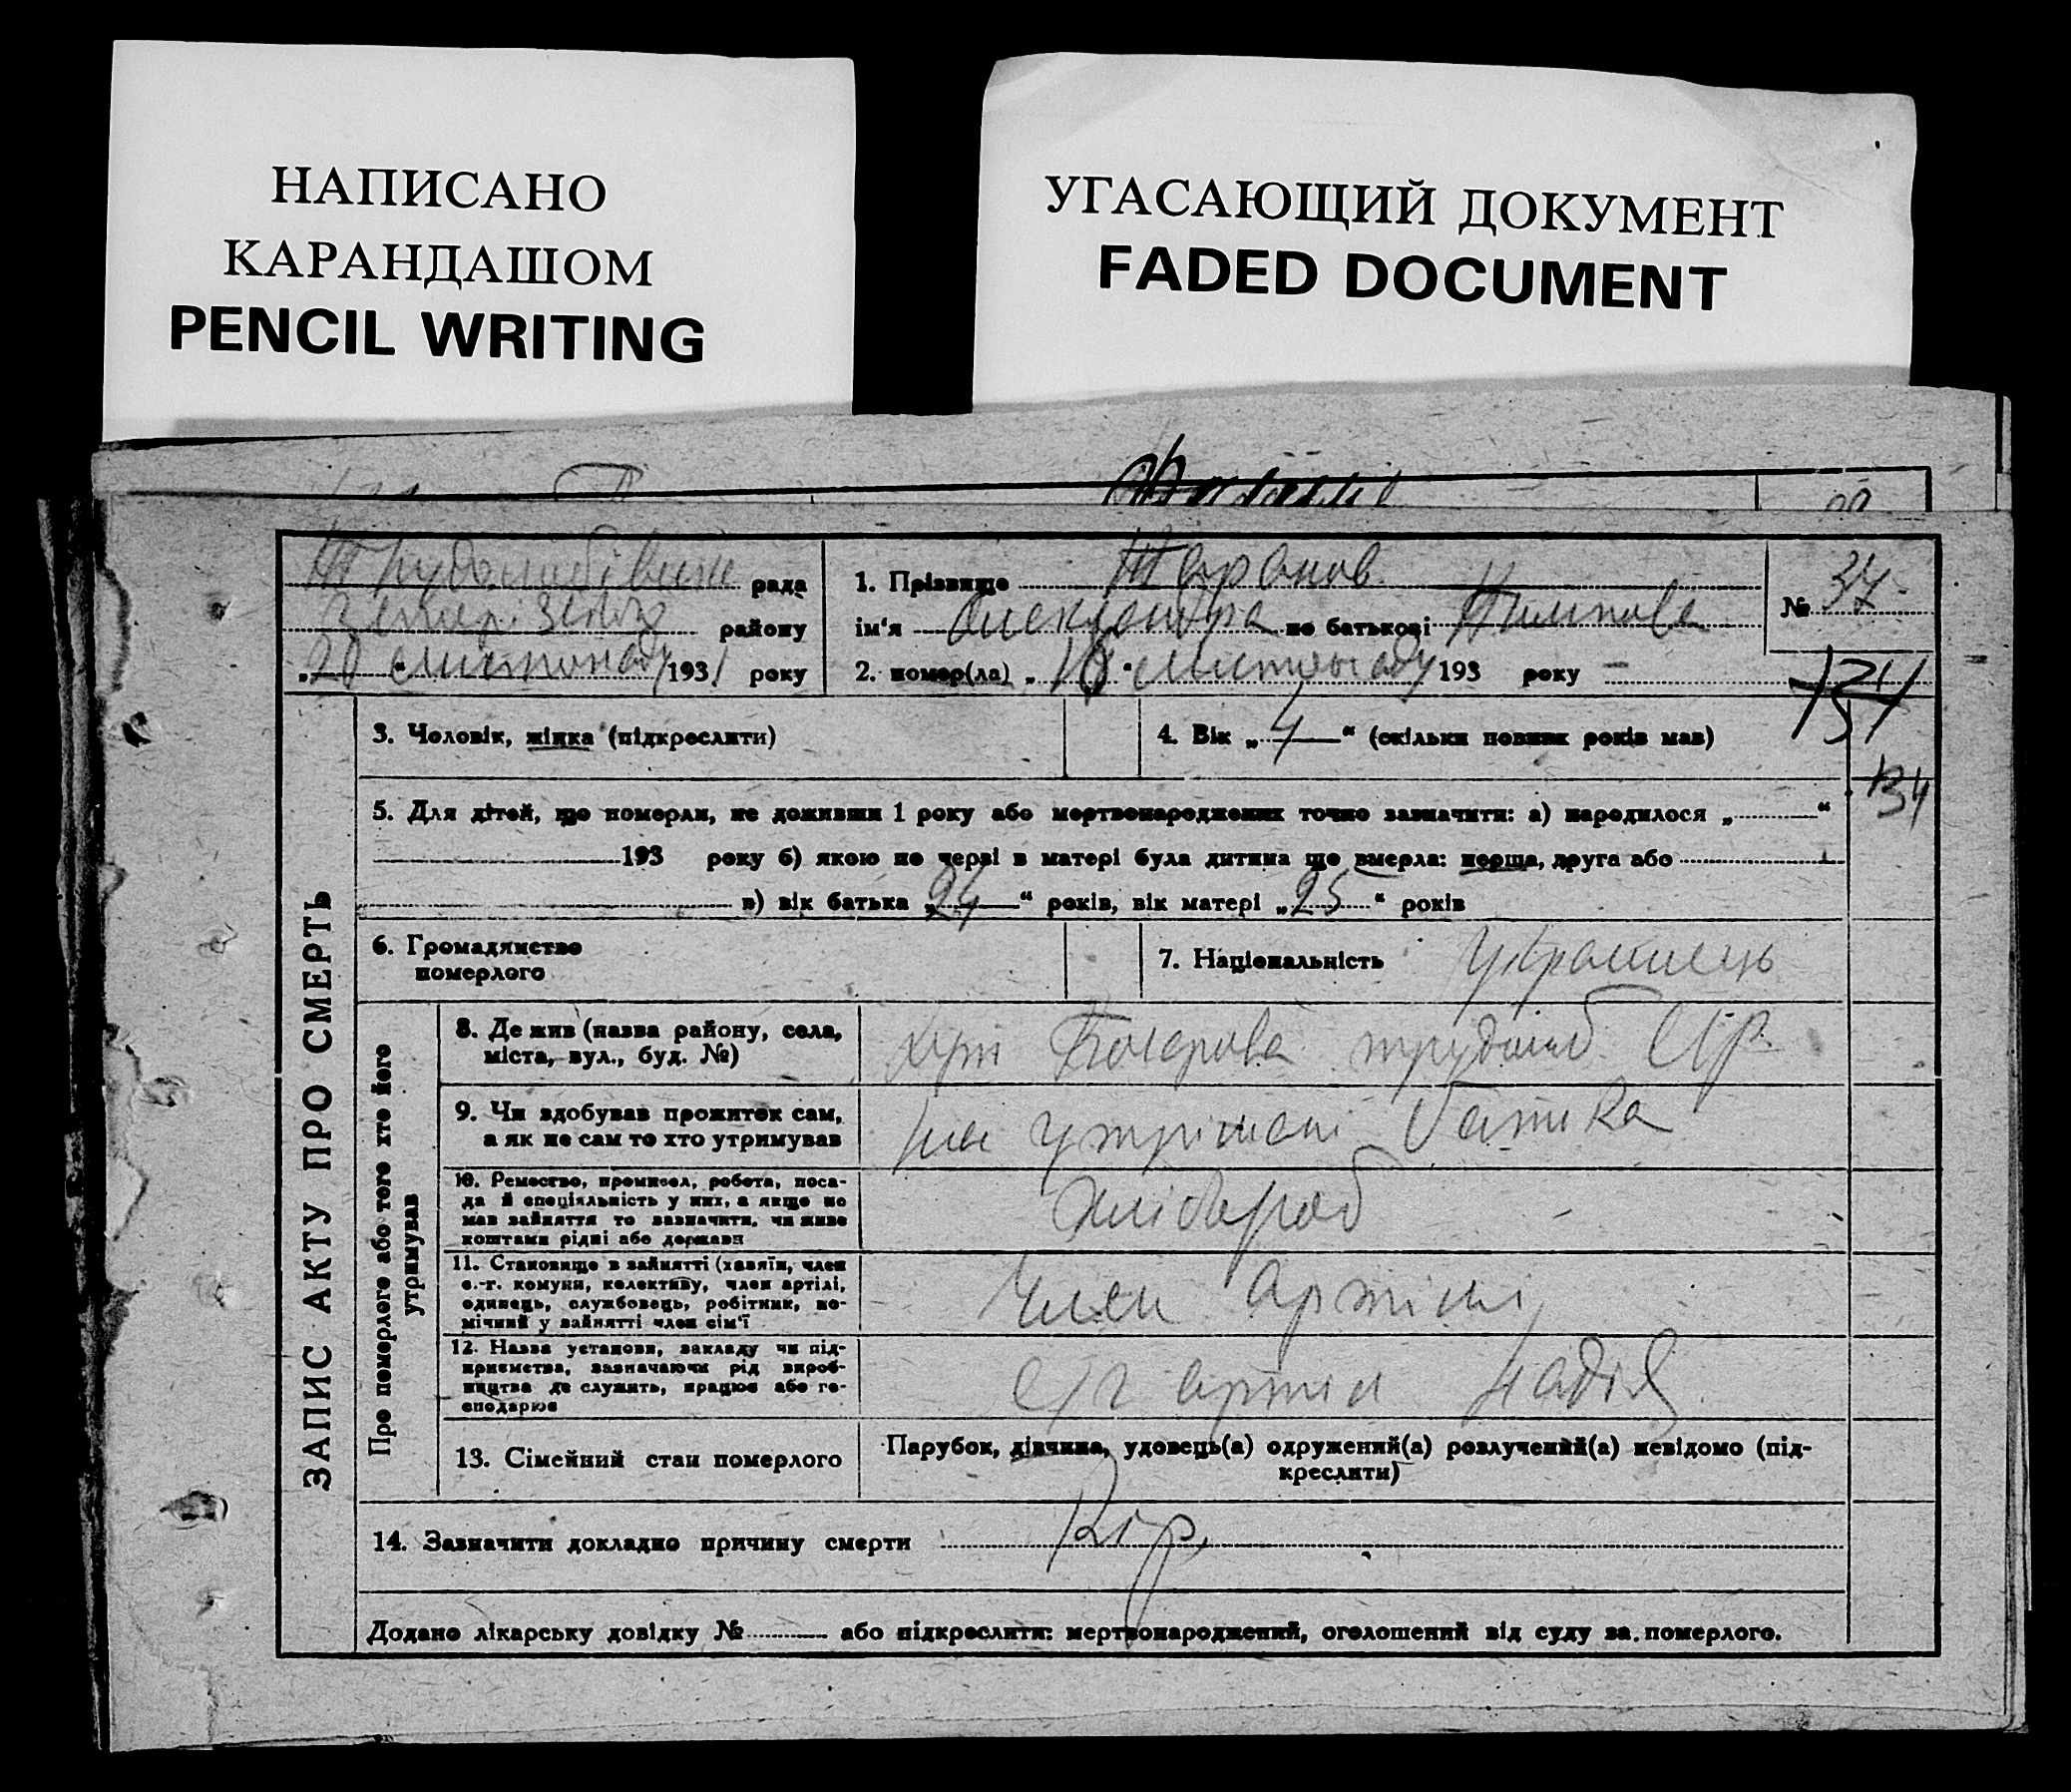 НАПИСАНО
КАРАНДАШОМ
PENCIL WRITING
УГАСАЮЩИЙ ДОКУМЕНТ
FADED DOCUMENT
рада
району
„20“ листопаду 1931 року
1. Прізвище Таранов
ім'я Олександра по батькові
2. помер(ла) „18“ листопаду 193 року –
№ 37
134
134
ЗАПИС АКТУ ПРО СМЕРТЬ
3. Чоловік, жінка (підкреслити)
4. Вік „4“ (скільки повних років мав)
5. Для дітей, що померли, не доживши 1 року або мертвонароджених точно зазначити: а) народилося „ “
193 року б) якою по черзі в матері була дитина що вмерла: перша, друга або
в) вік батька „24“ років, вік матері „25“ років
6. Громадянство
померлого
7. Національність Українець
Про померлого або того хто його
утримував
8. Де жив (назва району, села,
міста, вул., буд. №)
9. Чи здобував прожиток сам,
а як не сам то хто утримував
на утрімані батька
10. Ремество, промисел, робота, поса-
да й спеціяльність у них, а якщо не
мав зайняття то зазначити, чи живе
коштами рідні або держави
Хлібороб
11. Становище в зайнятті (хазяїн, член
с.-г. комуни, колективу, член артілі,
одинець, службовець, робітник, по-
мічний у зайнятті член сім'ї
Член артілі
12. Назва установи, закладу чи під-
приємства, зазначаючи рід вироб-
ництва де служить, працює або го-
сподарює
с/г артіл Надія
13. Сімейний стан померлого
Парубок, дівчина, удовець(а) одружений(а) розлучений(а) невідомо (під-
креслити)
14. Зазначити докладно причину смерти Кір
Додано лікарську довідку № або підкреслити: мертвонароджений, оголошений від суду за померлого.